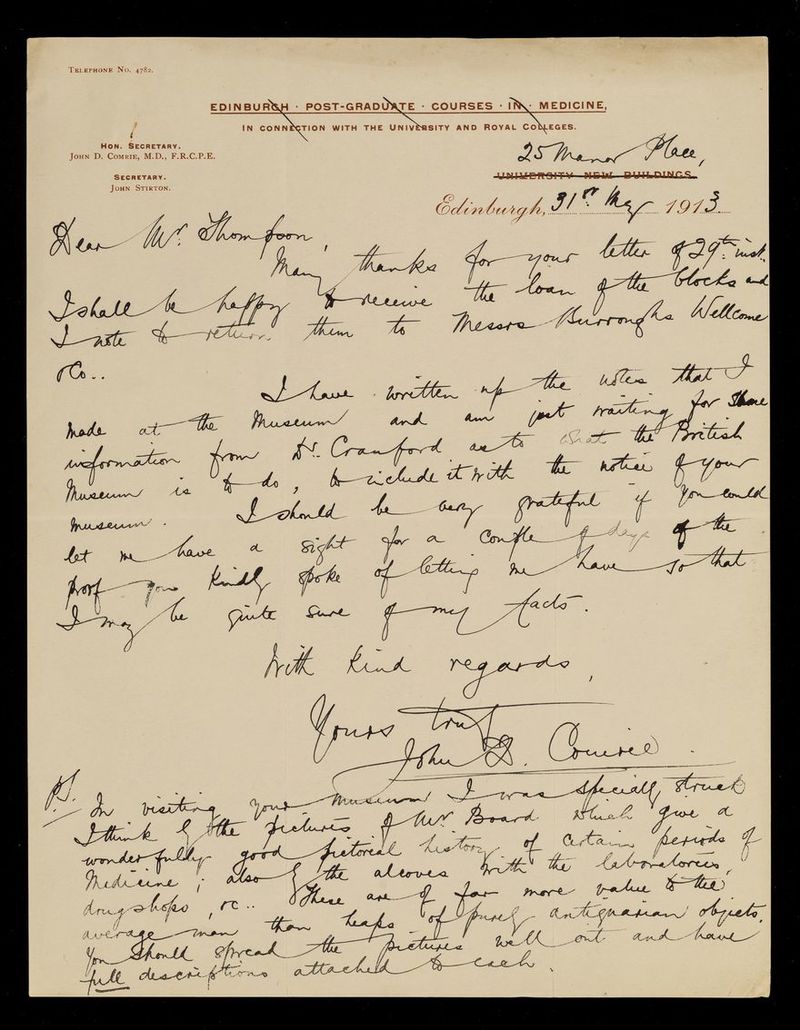 TELEPHONE NO. 4782.
EDINBURGH · POST-GRADUATE · COURSES · IN · MEDICINE,
IN CONNECTION WITH THE UNIVERSITY AND ROYAL COLLEGES.
HON. SECRETARY.
JOHN D. COMRIE, M.D., F.R.C.P.E.
SECRETARY.
JOHN STIRTON.
25 Manor Place,
UNIVERSITY NEW BUILDINGS.
Edinburgh, 31st May 1913.
Dear Mr. Thompson,
Many thanks for your letter of 29th. inst.
I shall be happy to receive the loan of the blocks and
I note to return them to Messrs Burroughs Wellcome
& Co..
I have written up the notes that I
made at the Museum and am just waiting for some
information from Dr. Crawford as to what the British
Museum is to do, to include it with the notice of your
museum. I should be very grateful if you could
let me have a sight for a couple of days of the
proof you kindly spoke of letting me have so that
I may be quite sure of my facts.
With kind regards,
Yours truly
John D. Comrie.
P.S. In visiting your museum I was specially struck
I think by the pictures of Mr Board which give a
wonderfully good pictorial history of certain periods of
Medicine; also by the alcoves with the laboratories,
drug shops, &c.. These are of far more value to the
average man than heaps of purely antiquarian objects.
You should spread the pictures well out and have
full descriptions attached to each.